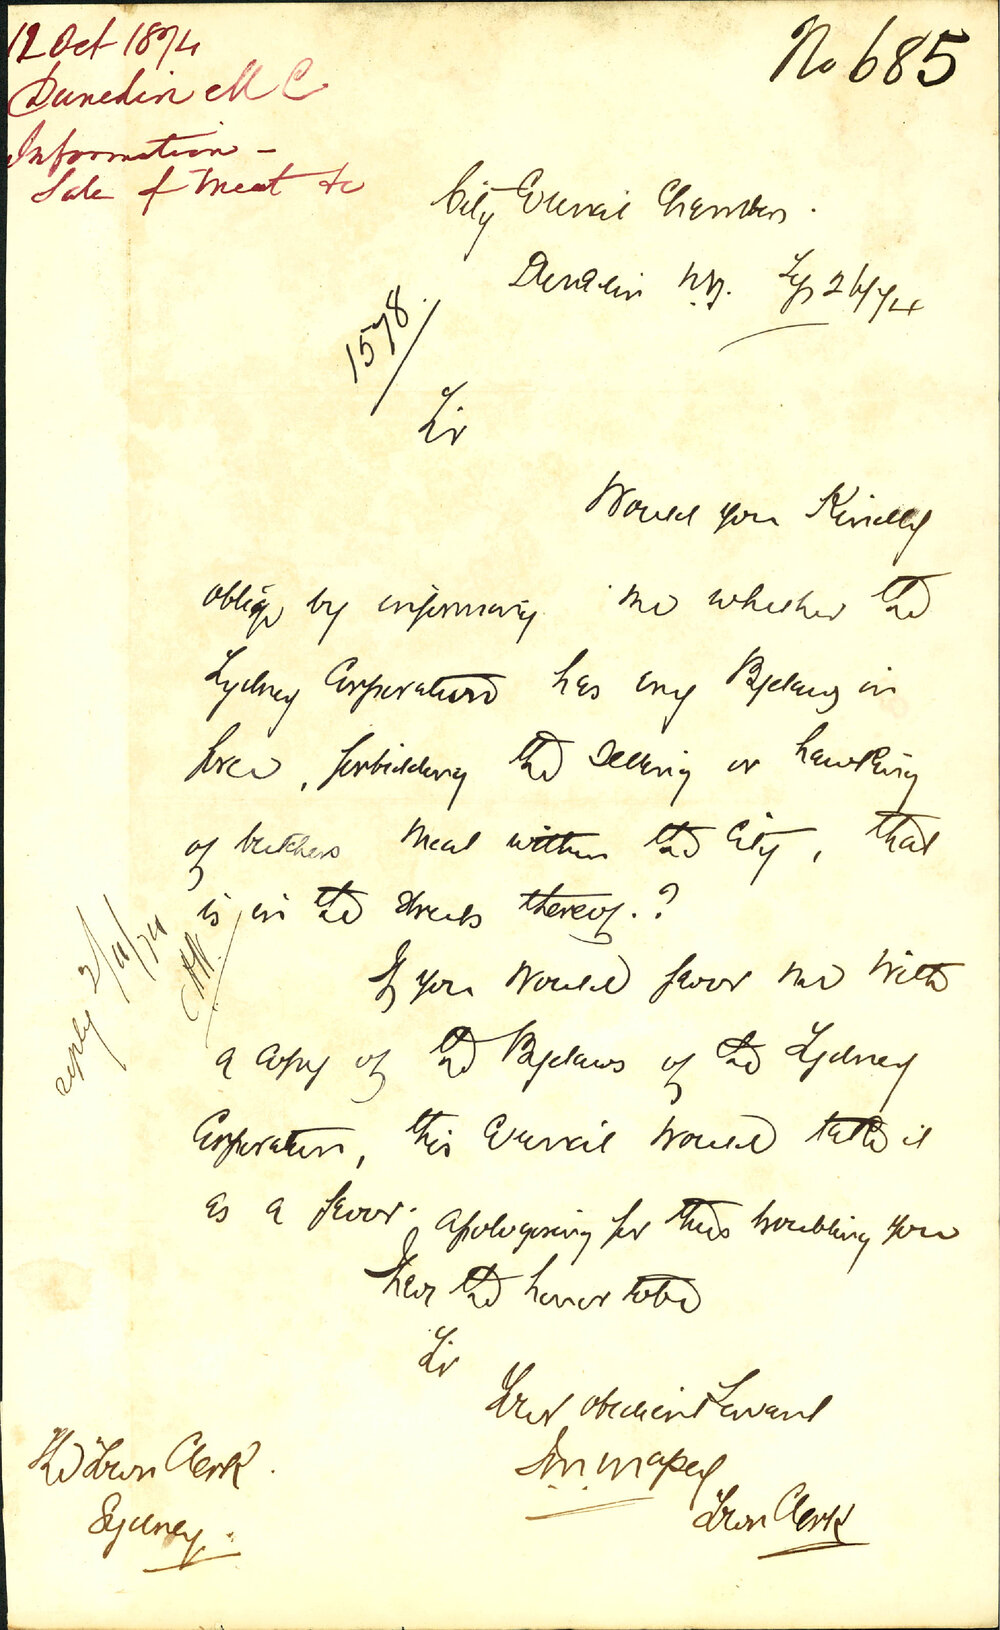 12 Oct 1874
Dunedin M C
Information -
Sale of Meat &c
No 685
City Council Chambers.
Dunedin N.Z. Sep 26/74
1578
Sir
Would you Kindly
oblige by informing me whether the
Sydney Corporation has any Byelaws in
force, forbidding the Selling or hawking
of butchers Meat within the City, that
is in the streets thereof.?
If you would favor me with
a copy of the Byelaws of the Sydney
Corporation, this Council would take it
as a favor. Apologising for thus troubling you
I have the honor to be
Sir
Your obedient Servant
Town Clerk
The Town Clerk
Sydney.
reply 2/11/74